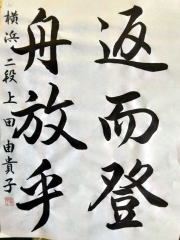 返而登
舟放乎
横浜二段上田由貴子